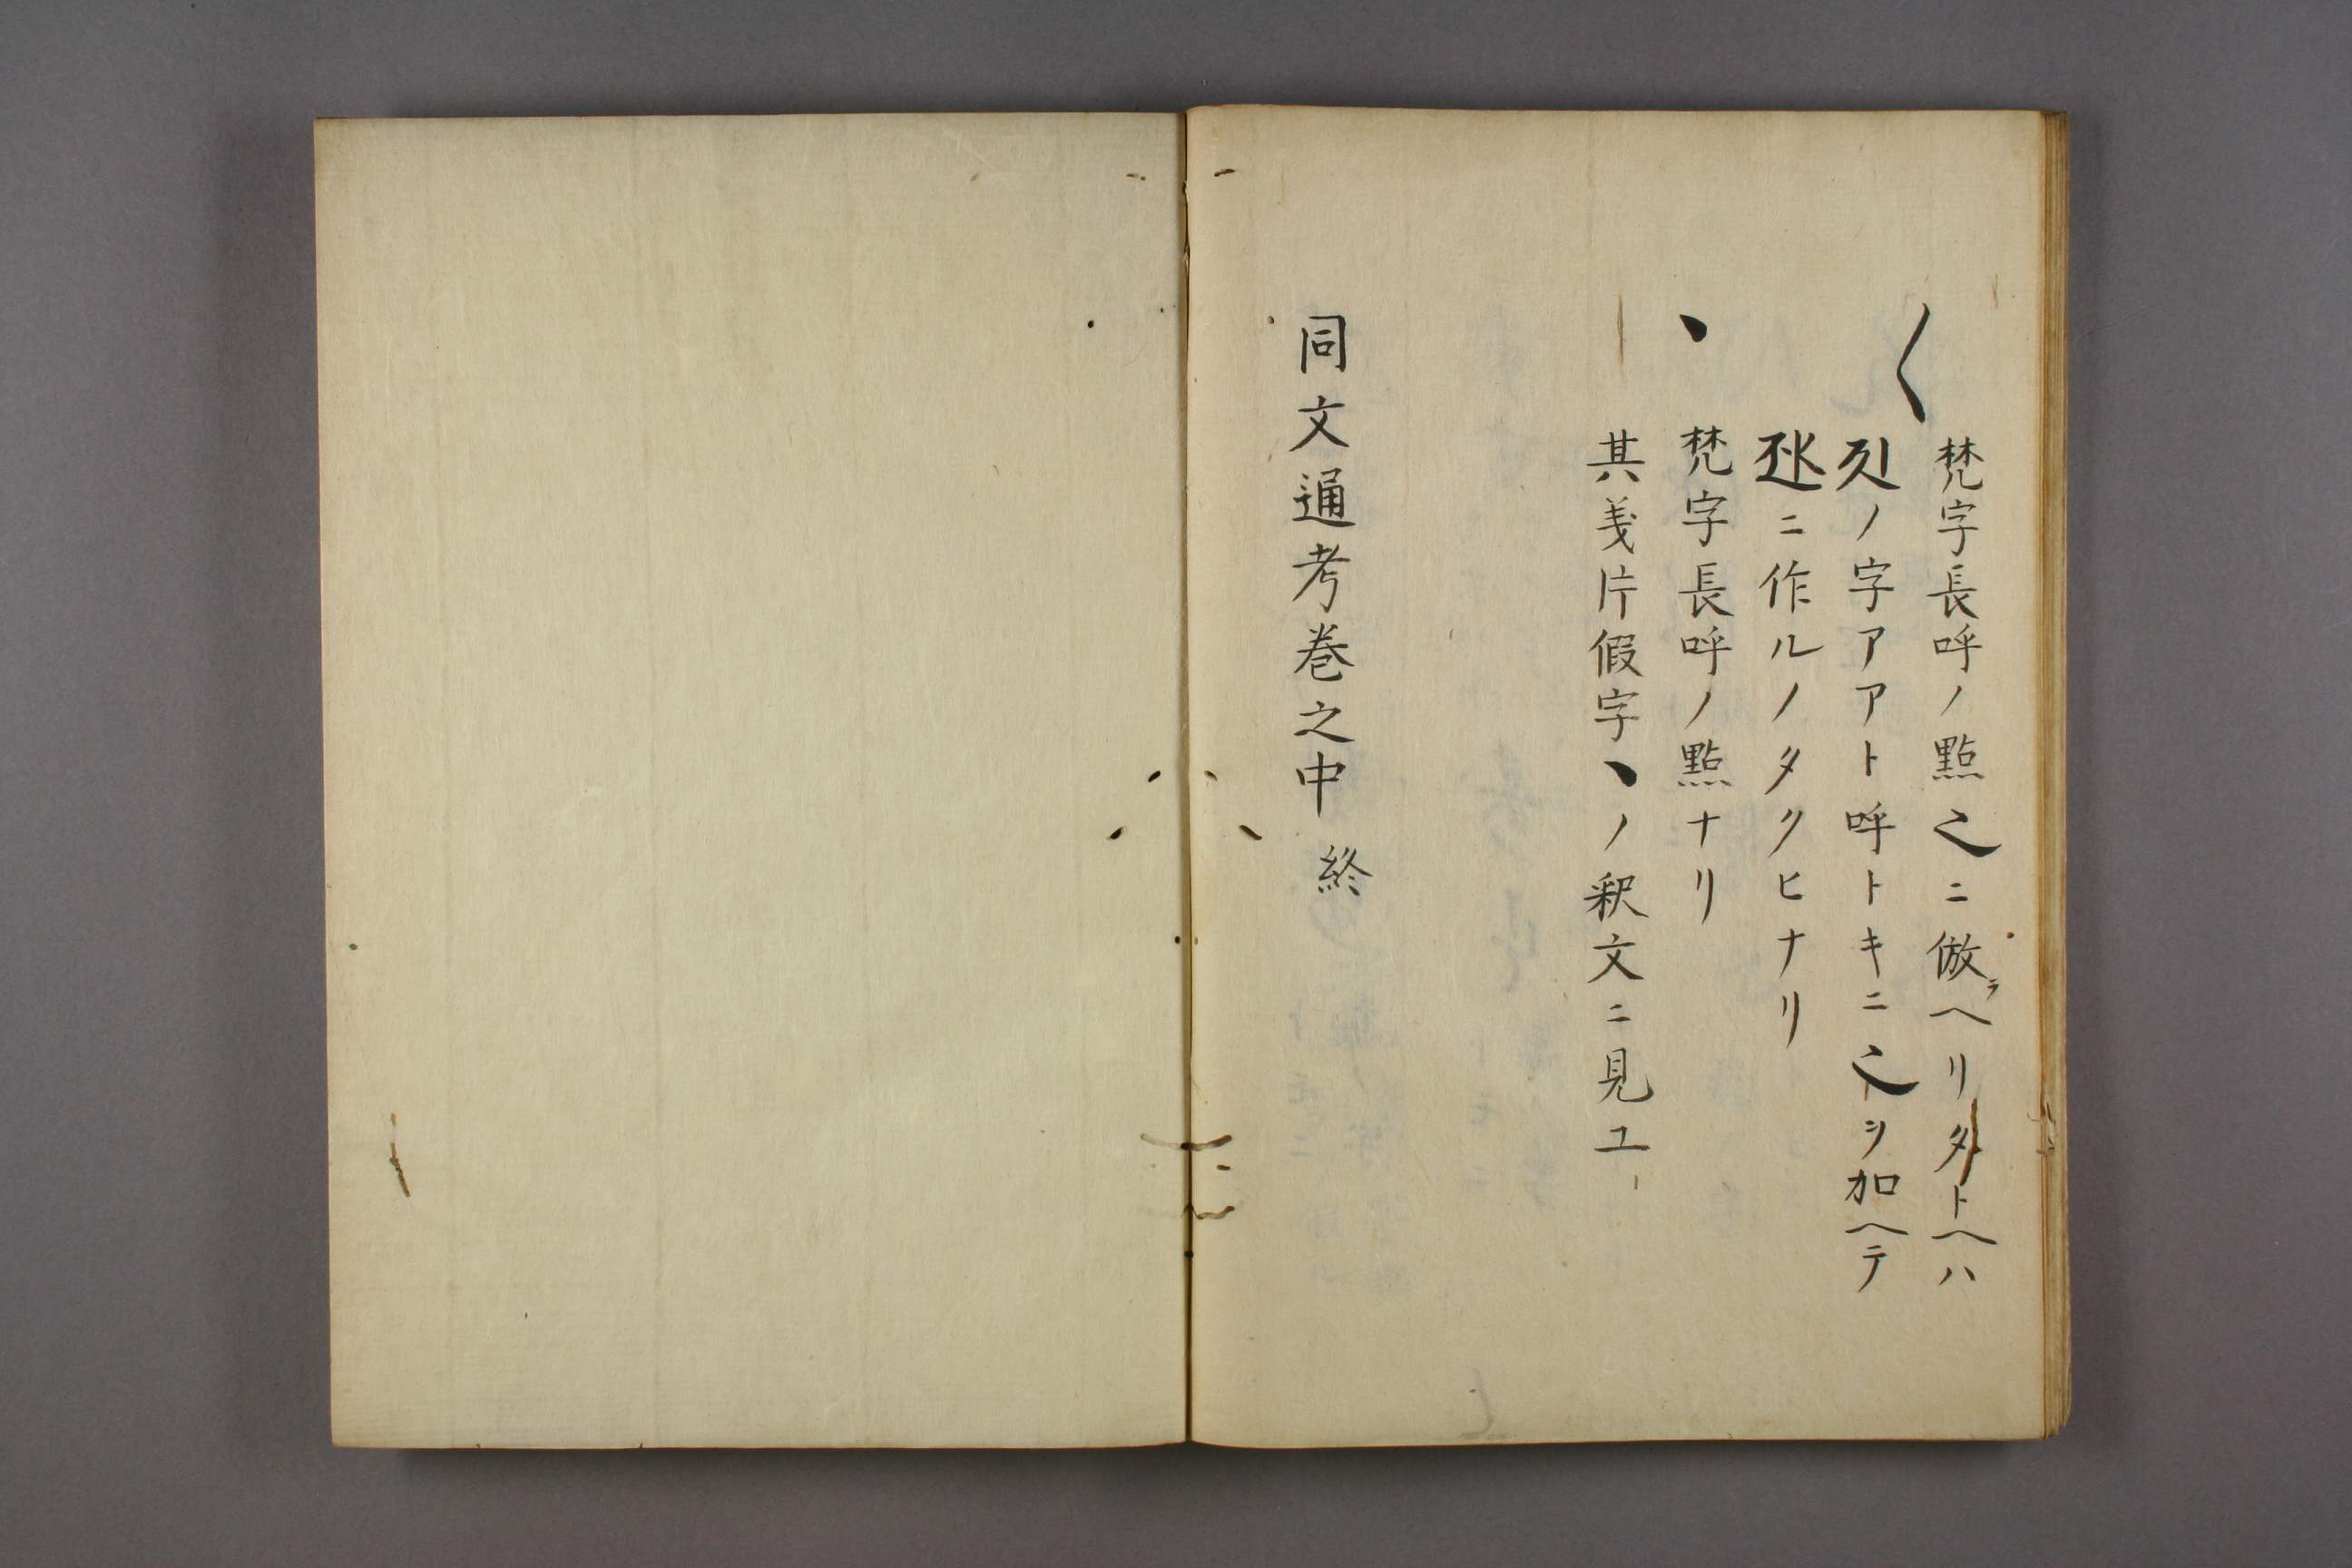 〱
梵字長呼ノ點ニ倣ラヘリタトヘハ
ノ字アアト呼トキニヲ加ヘテ
ニ作ルノタクヒナリ
丶
梵字長呼ノ點ナリ
其義片假字丶ノ釈文ニ見ユ
同文通考巻之中 終